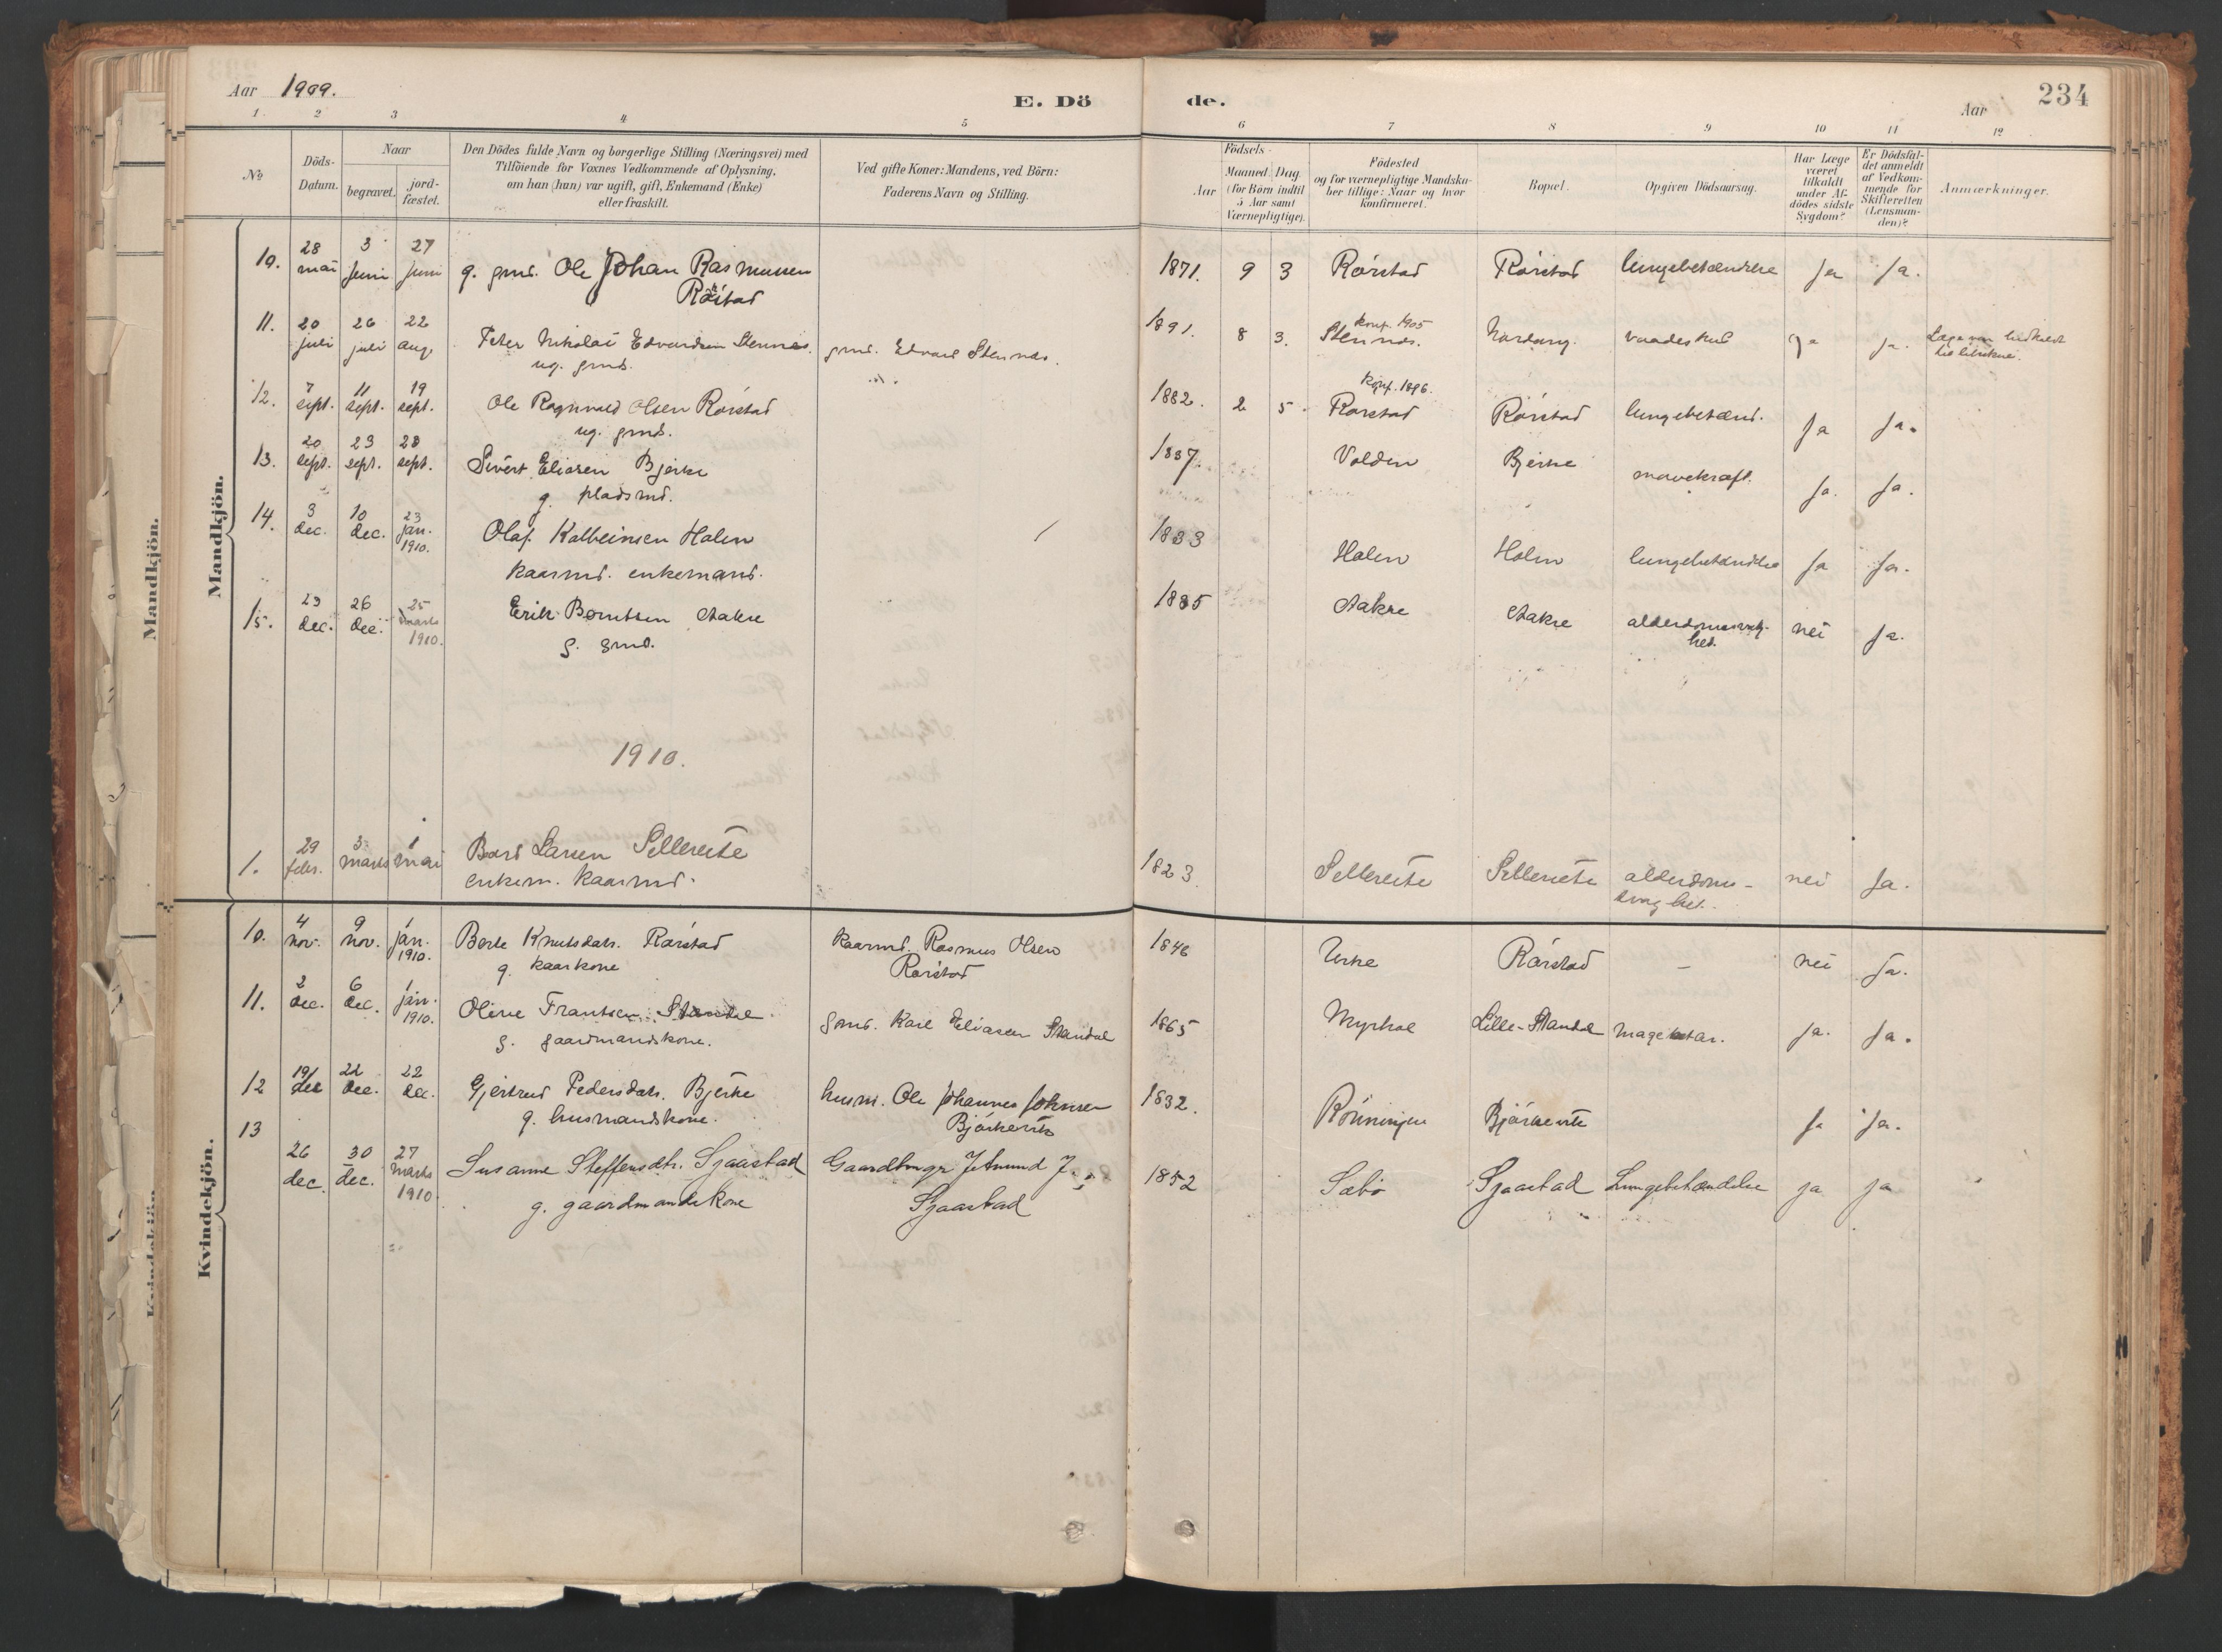 Aar 1909.
E. Dö de.
Aar
234
1 2 3 4 5 6 7 8 9 10 11 12
No.
Döds-Datum.
Naar
begravet.
jord-fæstet.
Den Dödes fulde Navn og borgerlige Stilling (Næringsvei) med
Tilföiende for Voxnes Vedkommende af Oplysning,
om han (hun) var ugift, gift, Enkemand (Enke)
eller fraskilt.
Ved gifte Koner: Mandens, ved Börn:
Faderens Navn og Stilling.
Födsels-
Aar
Maaned. Dag.
(for Börn indtil
5 Aar samt
Værnepligtige).
Födested
og for værnepligtige Mandska-
ber tillige: Naar og hvor
konfirmeret.
Bopæl.
Opgiven Dödsaarsag.
Har Læge
været
tilkaldt
under Af-
dödes sidste
Sygdom?
Er Dödsfal-
det anmeldt
af Vedkom-
mende for
Skifteretten
(Lensman-
den)?
Anmærkninger.
Mandkjön.
Mandkjön.
10. 28 mai 3 juni 27 juni g. gmd. Ole Johan Rasmussen 1871. 9 3 Rörstad Rörstad lungebetændelse ja ja.
Rörstad
konf. 1905
11. 20 juli 26 juli 22 aug. Peter Nikolai Edvardsen Stennes. gmd. Edvard Stennes. 1891. 8 3. Stennes. Nordang. vaadeskud ja ja.
ug. gmd.
konf. 1896.
12. 7 sept. 11 sept. 19 sept. Ole Ragnvald Olsen Rörstad 1882. 2 5. Rörstad Rörstad lungebetænd. ja ja.
ug. gmd.
13. 20 sept. 23 sept. 28 sept. Sivert Eliasen Bjerke 1837. Volden Bjerke mavekræft. ja. ja.
g. pladsmd.
14. 3 dec. 10 dec. 23 jan. 1910. Olaf Kolbeinsen Holen 1833 Holen Holen lungebetændelse ja ja.
kaarmd. enkemand.
15. 23 dec. 26 dec. 25 marts 1910. Erik Berntsen Aakre 1835 Aakre Aakre alderdomssvag-
hed. nei ja.
g. gmd.
1910.
1. 29 febr. 3 marts 1 mai Bård Larsen Sellereite 1823. Sellereite Sellereite alderdoms-
svaghet. nei ja.
enkem. kaarmd.
Kvindekjön.
10. 4 nov. 9 nov. 1 jan. 1910. Berte Knutsdatr. Rörstad kaarmd. Rasmus Olsen 1846 Urke Rörstad – nei ja.
g. kaarkone Rörstad
11. 2 dec. 6 dec. 1 jan. 1910. Oline Frantsen Standal gmd. Karl Eliasen Standal 1865 Myrhol Lille-Standal ja. ja.
g. gaardmandskone.
12 19/ dec 22 dec. 22 dec. Gjertrud Pedersdatr. Bjerke husm. Ole Johannes Johnsen 1832. Rönningen ja ja.
g. husmandskone.
13 26 dec. 30 dec. 27 marts 1910 Susanne Steffensdtr. Sjaastad 1852 Sæbö Sjaastad Lungebetændelse ja ja
g. gaardmandskone Sjaastad